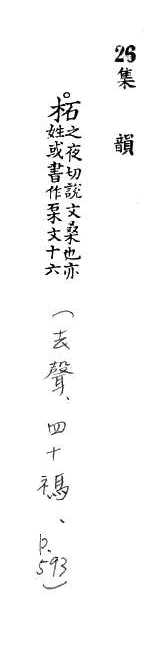 26 集 韻
柘 之夜切說文桑也亦
姓或書作文十六
(去聲、四十禡、p.593)